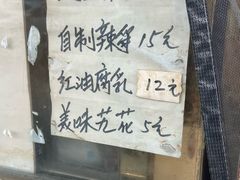 自制辣条 15元
红油腐乳 12元
美味艽花 5元